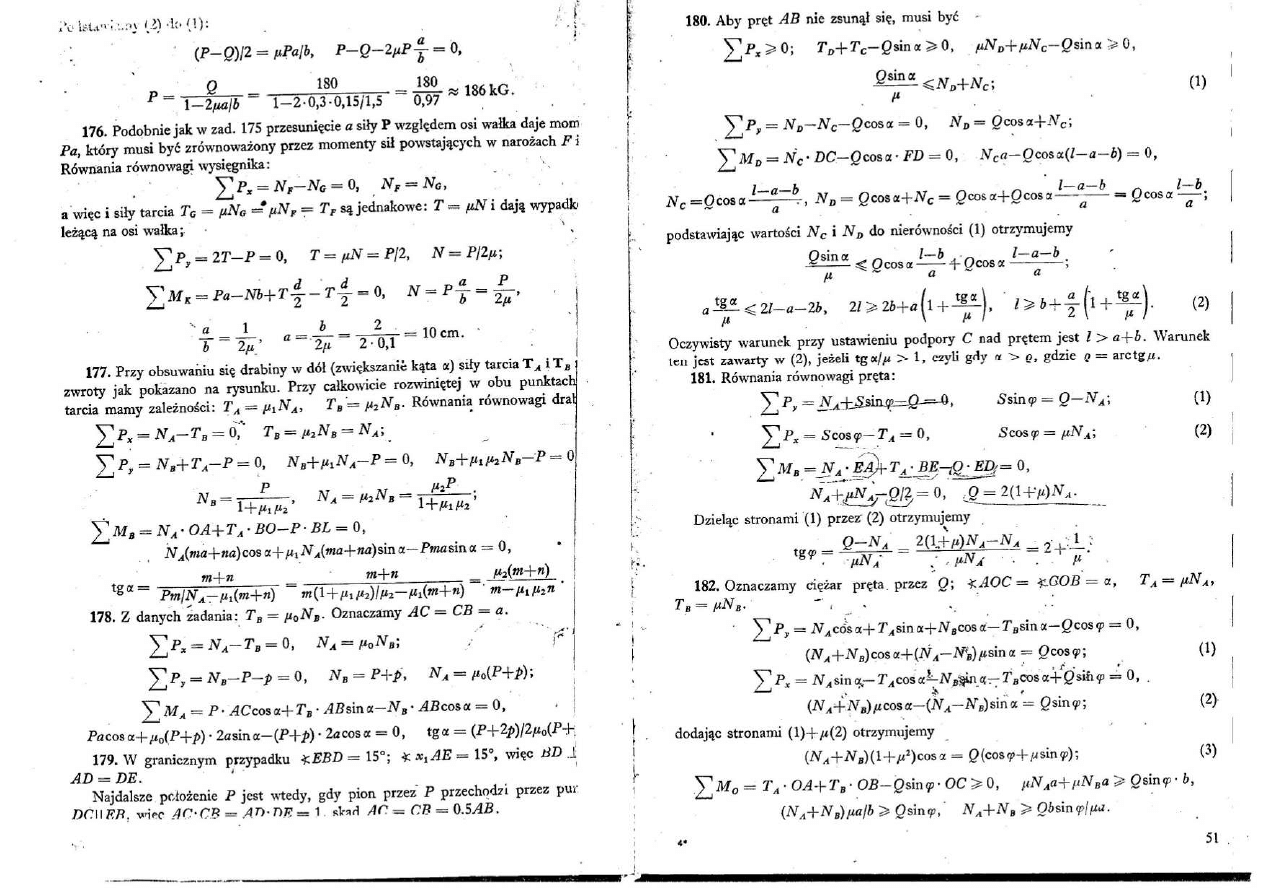 (2) do (1):
(P−Q)/2 = μPa/b, P−Q−2μP a/b = 0,
P = Q/(1−2μa/b) = 180/(1−2·0,3·0,15/1,5) = 180/0,97 ≈ 186 kG.
176. Podobnie jak w zad. 175 przesunięcie a siły P względem osi wałka daje mom
Pa, który musi być zrównoważony przez momenty sił powstających w narożach F i
Równania równowagi wysięgnika:
∑Pₓ = N_F−N_G = 0, N_F = N_G,
a więc i siły tarcia T_G = μN_G = μN_F = T_F są jednakowe: T = μN i dają wypadk
leżącą na osi wałka;
∑P_y = 2T−P = 0, T = μN = P/2, N = P/2μ;
∑M_K = Pa−Nb+T d/2 −T d/2 = 0, N = P a/b = P/2μ,
a/b = 1/2μ, a = b/2μ = 2/(2·0,1) = 10 cm.
177. Przy obsuwaniu się drabiny w dół (zwiększanie kąta α) siły tarcia T_A i T_B
zwroty jak pokazano na rysunku. Przy całkowicie rozwiniętej w obu punktach
tarcia mamy zależności: T_A = μ₁N_A, T_B = μ₂N_B. Równania równowagi dra
∑Pₓ = N_A−T_B = 0, T_B = μ₂N_B = N_A;
∑P_y = N_B+T_A−P = 0, N_B+μ₁N_A−P = 0, N_B+μ₁μ₂N_B−P = 0
N_B = P/(1+μ₁μ₂), N_A = μ₂N_B = μ₂P/(1+μ₁μ₂);
∑M_B = N_A·OA+T_A·BO−P·BL = 0,
N_A(ma+na)cos α+μ₁N_A(ma+na)sin α−Pma sin α = 0,
tg α = (m+n)/(Pm/N_A−μ₁(m+n)) = (m+n)/(m(1+μ₁μ₂)/μ₂−μ₁(m+n)) = μ₂(m+n)/(m−μ₁μ₂n).
178. Z danych zadania: T_B = μ₀N_B. Oznaczamy AC = CB = a.
∑Pₓ = N_A−T_B = 0, N_A = μ₀N_B;
∑P_y = N_B−P−p = 0, N_B = P+p, N_A = μ₀(P+p);
∑M_A = P·AC cos α+T_B·AB sin α−N_B·AB cos α = 0,
Pa cos α+μ₀(P+p)·2a sin α−(P+p)·2a cos α = 0, tg α = (P+2p)/2μ₀(P+
179. W granicznym przypadku ∢EBD = 15°; ∢x₁AE = 15°, więc BD ⊥
AD = DE.
Najdalsze położenie P jest wtedy, gdy pion przez P przechodzi przez
DC||EB, więc AC·CB = AD·DE = 1 skąd AC = CB = 0.5AB.
180. Aby pręt AB nie zsunął się, musi być
∑Pₓ ⩾ 0; T_D+T_C−Q sin α ⩾ 0, μN_D+μN_C−Q sin α ⩾ 0,
Q sin α/μ ⩽ N_D+N_C; (1)
∑P_y = N_D−N_C−Q cos α = 0, N_D = Q cos α+N_C;
∑M_D = N_C·DC−Q cos α·FD = 0, N_C a−Q cos α(l−a−b) = 0,
N_C = Q cos α (l−a−b)/a, N_D = Q cos α+N_C = Q cos α+Q cos α (l−a−b)/a = Q cos α (l−b)/a;
podstawiając wartości N_C i N_D do nierówności (1) otrzymujemy
Q sin α/μ ⩽ Q cos α (l−b)/a + Q cos α (l−a−b)/a;
a tg α/μ ⩽ 2l−a−2b, 2l ⩾ 2b+a(1+tg α/μ), l ⩾ b+a/2(1+tg α/μ). (2)
Oczywisty warunek przy ustawieniu podpory C nad prętem jest l > a+b. Warunek
ten jest zawarty w (2), jeżeli tg α/μ > 1, czyli gdy α > ϱ, gdzie ϱ = arc tg μ.
181. Równania równowagi pręta:
∑P_y = N_A+S sin φ−Q = 0, S sin φ = Q−N_A; (1)
∑Pₓ = S cos φ−T_A = 0, S cos φ = μN_A; (2)
∑M_B = N_A·EA+T_A·BE−Q·ED = 0,
N_A+μN_A−Q/2 = 0, Q = 2(1+μ)N_A.
Dzieląc stronami (1) przez (2) otrzymujemy
tg φ = (Q−N_A)/μN_A = (2(1+μ)N_A−N_A)/μN_A = 2+1/μ.
182. Oznaczamy ciężar pręta przez Q; ∢AOC = ∢GOB = α, T_A = μN_A,
T_B = μN_B.
∑P_y = N_A cos α+T_A sin α+N_B cos α−T_B sin α−Q cos φ = 0,
(N_A+N_B)cos α+(N_A−N_B)μ sin α = Q cos φ; (1)
∑Pₓ = N_A sin α−T_A cos α−N_B sin α−T_B cos α+Q sin φ = 0,
(N_A+N_B)μ cos α−(N_A−N_B)sin α = Q sin φ; (2)
dodając stronami (1)+μ(2) otrzymujemy
(N_A+N_B)(1+μ²)cos α = Q(cos φ+μ sin φ); (3)
∑M_O = T_A·OA+T_B·OB−Q sin φ·OC ⩾ 0, μN_A a+μN_B a ⩾ Q sin φ·b,
(N_A+N_B)μa/b ⩾ Q sin φ, N_A+N_B ⩾ Qb sin φ/μa.
4* 51